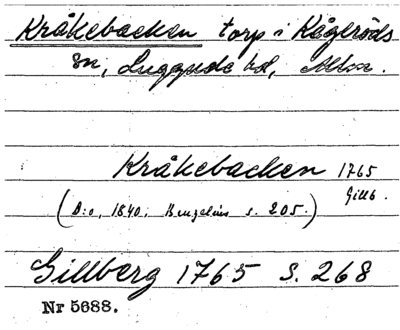 Kråkebacken torp i Kågeröds
sn, Luggude hd, Mlm.
Kråkebacken 1765
Gillb.
(D:o, 1840. Bengelius s. 205.)
Gillberg 1765 s. 268
Nr 5688.